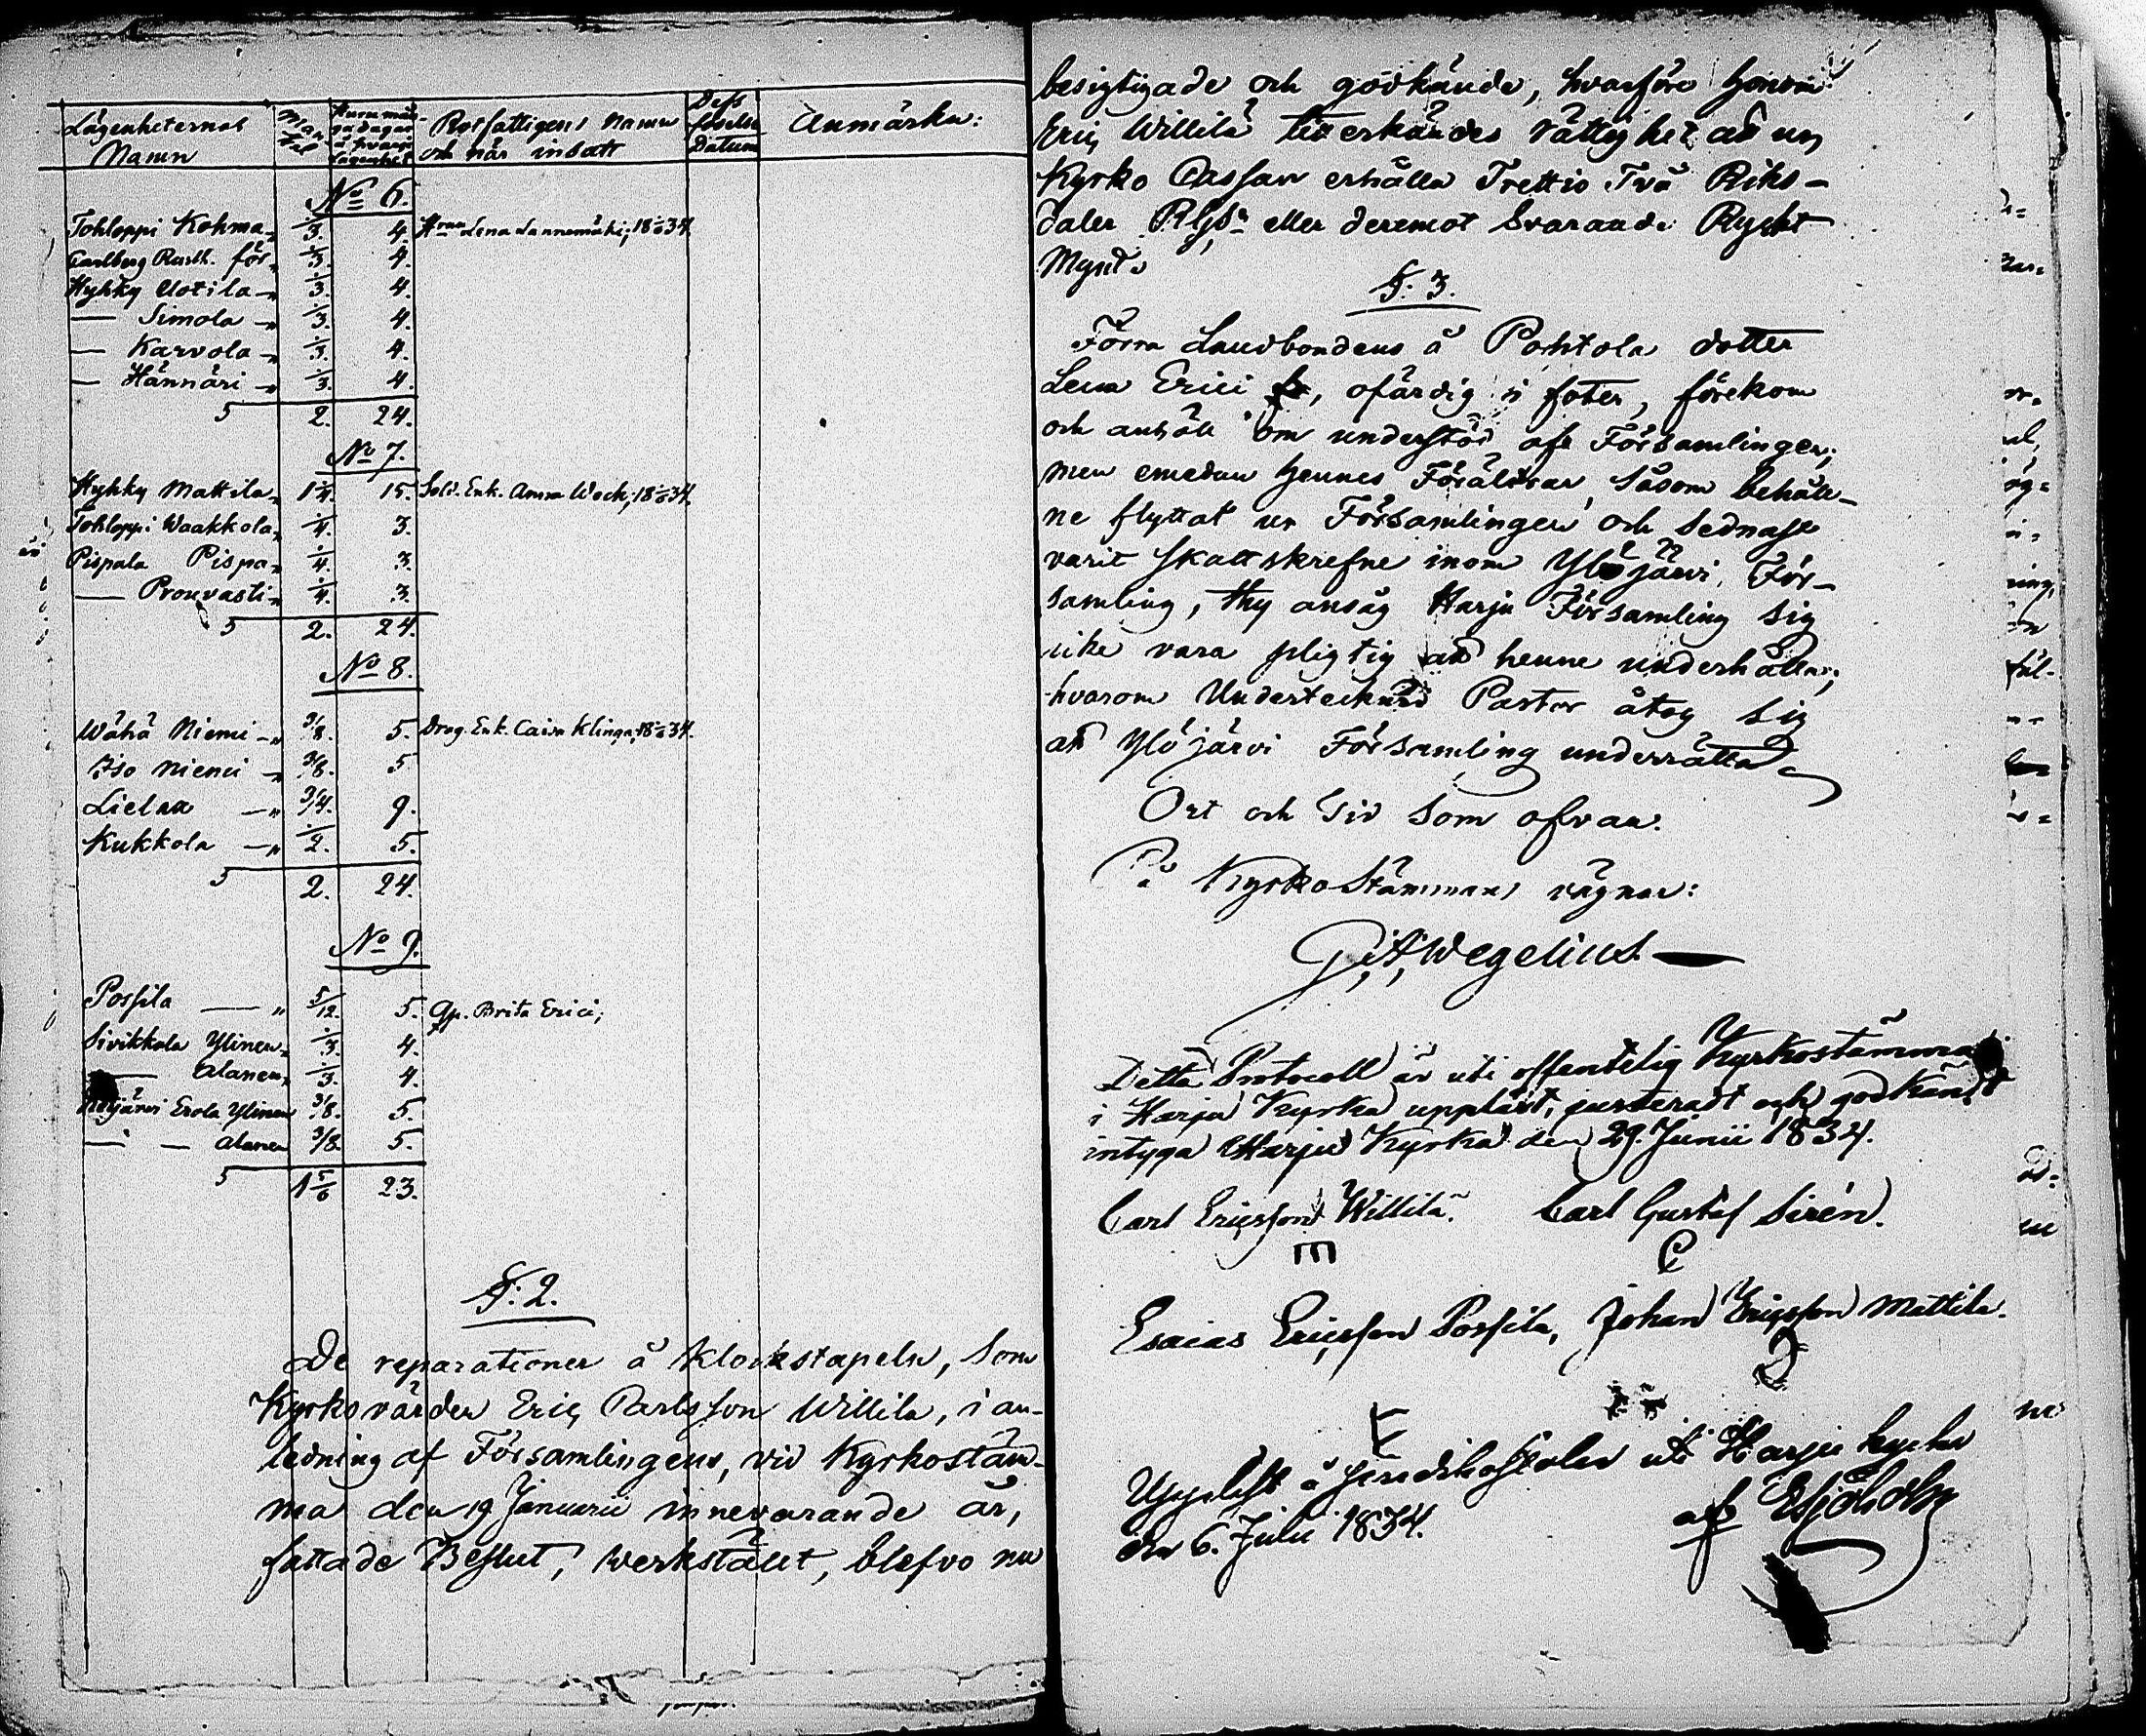 Lägenheternas Namn | Mantal | Huru många dagar å hvarje lägenhet | Rotfattigens Namn och när insatt | Dess födelse Datum | Anmärkn:
No 6.
Tohloppi Kohma „ 1/3. 4. Lena Lannemäki, 18 34.
Carlberg Rusth. för „ 1/3. 4.
Hyhky Uotila „ 1/3. 4.
— Simola „ 1/3. 4.
— Karvola „ 1/3. 4.
— Hännäri „ 1/3. 4.
S 2. 24.
No 7.
Hyhky Mattila „ 1 1/4. 15. Sold. Enk. Anna Weck, 18 34.
Tohloppi Waakkola „ 1/4. 3.
Pispala Pispa „ 1/4. 3.
— Prouvasti „ 1/4. 3.
S 2. 24.
No 8.
Wähä Niemi „ 3/8. 5. Drag. Enk. Caisa Klinga, 18 34.
Iso Niemi „ 3/8. 5
Lielax „ 3/4. 9.
Kukkola „ 1/2. 5.
S 2. 24.
No 9.
Possila „ 5/12. 5. Qp. Brita Erici;
Sivikkala Ylinen „ 1/3. 4.
— Alanen „ 1/3. 4.
Erola Ylinen 3/8. 5.
— — Alanen 3/8. 5.
S 1 5/6 23.
§. 2.
De reparationer å Klockstapeln, som
Kyrkovärden Eric Carlsson Willila, i an-
ledning af Församlingens, vid Kyrkostäm-
ma den 19 Januarii innevarande år,
fattade Beslut, werkstält, blefvo nu
besigtigade och godkände, hvarföre honom
Eric Willilä tillerkändes rättighet att ur
Kyrko Cassan erhålla Trettio Två Riks-
daler Rgs eller deremot svarande Ryskt
Mynt.
§. 3.
Förra Landbondens å Pohtola dotter
Lena Erici, ofärdig i foter, förekom
och anhöll om understöd af Församlingen;
men emedan hennes Föräldrar såsom behåll-
ne flyttat ur Församlingen och sednast
varit skattskrefne inom Ylöjärvi För-
samling, thy ansåg Harju Församling sig
icke vara pligtig att henne underhålla;
hvarom Undertecknad Pastor åtog sig
att Ylöjärvi Församling underrätta
Ort och Tid som ofvan.
På Kyrko Stämmans vägnar:
G. A. Wegelius
Detta Protocoll är uti offentelig Kyrkostämma
i Harju Kyrka uppläst, justeradt och godkändt
intyga Harju Kyrka den 29. Junii 1834.
Carl Ericsson Willilä. Carl Gustaf Sirén.
Esaias Ericsson Possila, Johan Ericsson Mattila.
Uppläst å uti Harju kyrka
den 6. Julii 1834. af